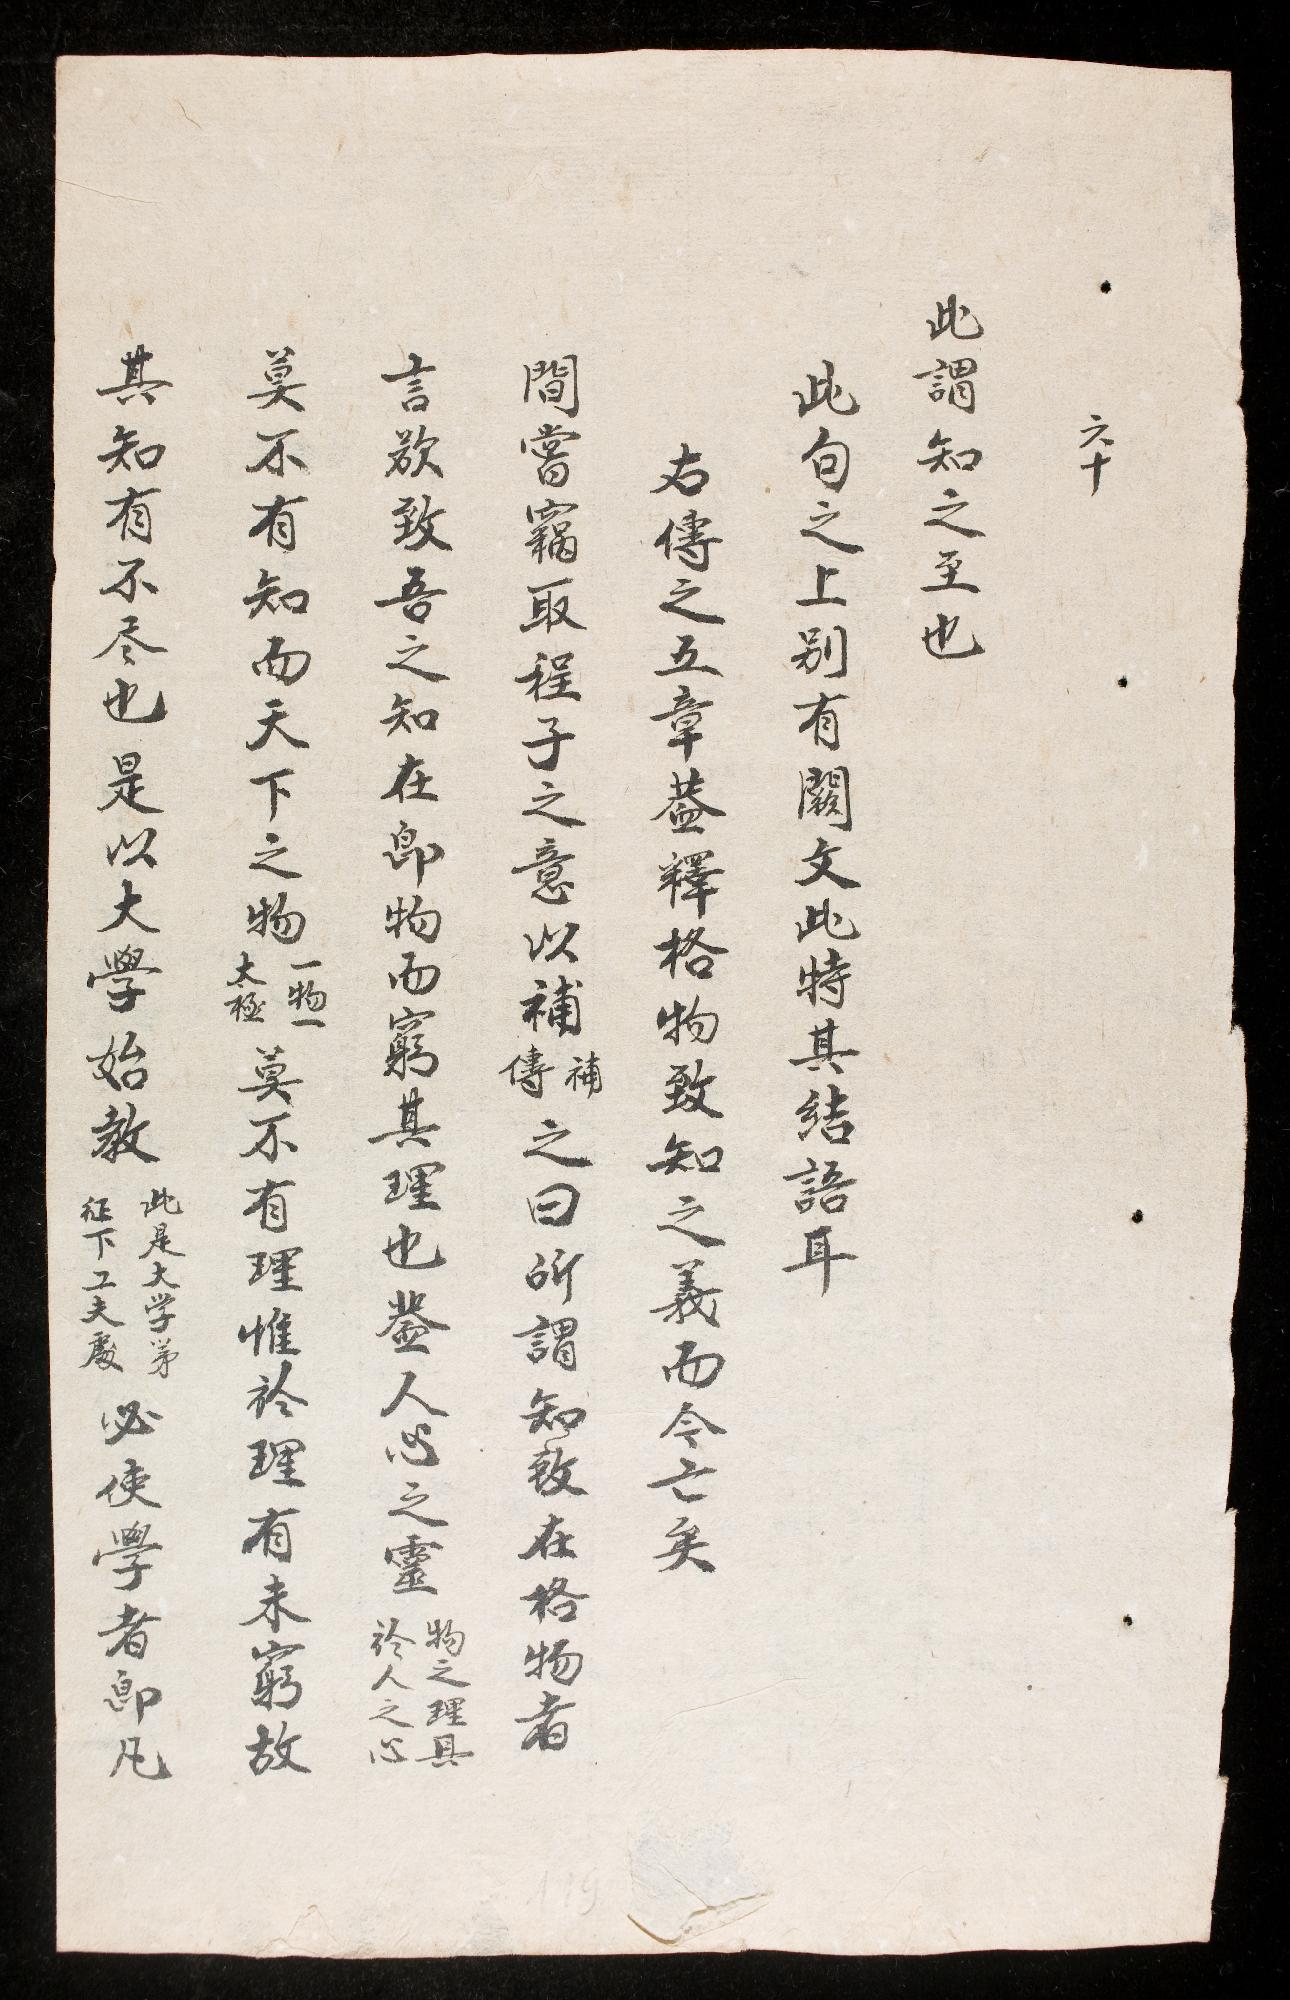 六十
此謂知之至也
此句之上别有闕文此特其結語耳
右傳之五章蓋釋格物致知之義而今亡矣
間嘗竊取程子之意以補補傳之曰所謂知致在格物者
言欲致吾之知在即物而窮其理也蓋人心之靈物之理具於人之心
莫不有知而天下之物一物一太極莫不有理惟於理有未窮故
其知有不尽也是以大學始教此是大学第征下工夫處必使學者即凡
119